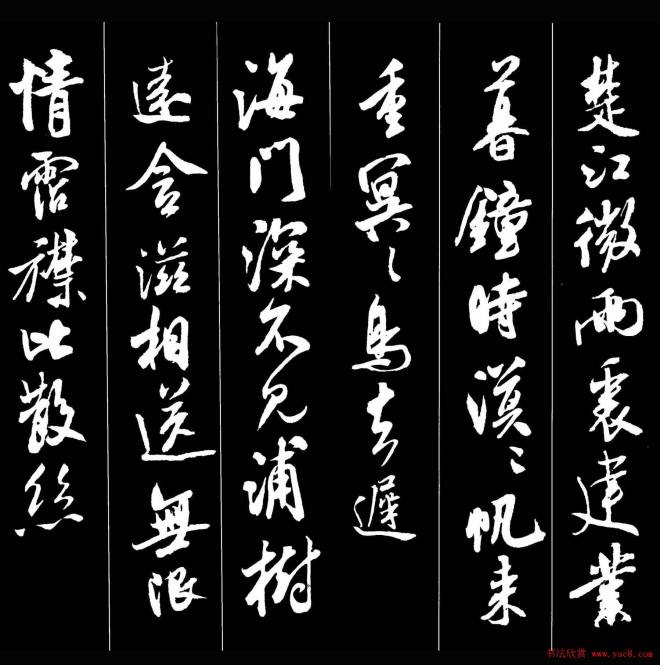 楚江微雨裏建業
暮鐘時漠〻帆来
重冥〻鳥去遲
海門深不見浦樹
遠含滋相送無限
情霑襟比散絲
书法欣赏 www.yac8.com